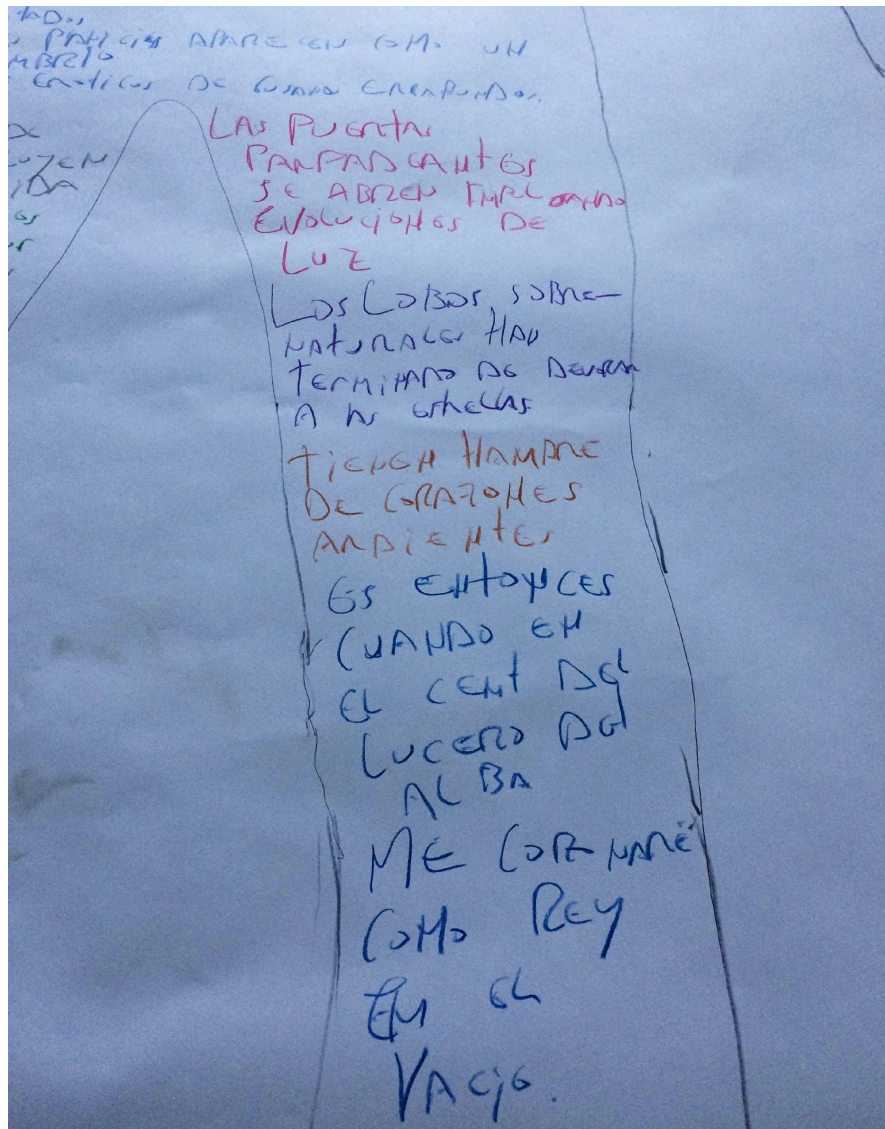 APARECEN COMO UN
DE GUSANO
LAS PUERTAS
PARPADEANTES
SE ABREN IMPLORANDO
EVOLUCIONES DE
LUZ
LOS LOBOS SOBRE-
NATURALES HAN
TERMINADO DE DEVORAR
A LAS ESTRELLAS
TIENEN HAMBRE
DE CORAZONES
ARDIENTES
ES ENTONCES
CUANDO EN
EL CENT DEL
LUCERO DEL
ALBA
ME CORONARÉ
COMO REY
EN EL
VACIO.